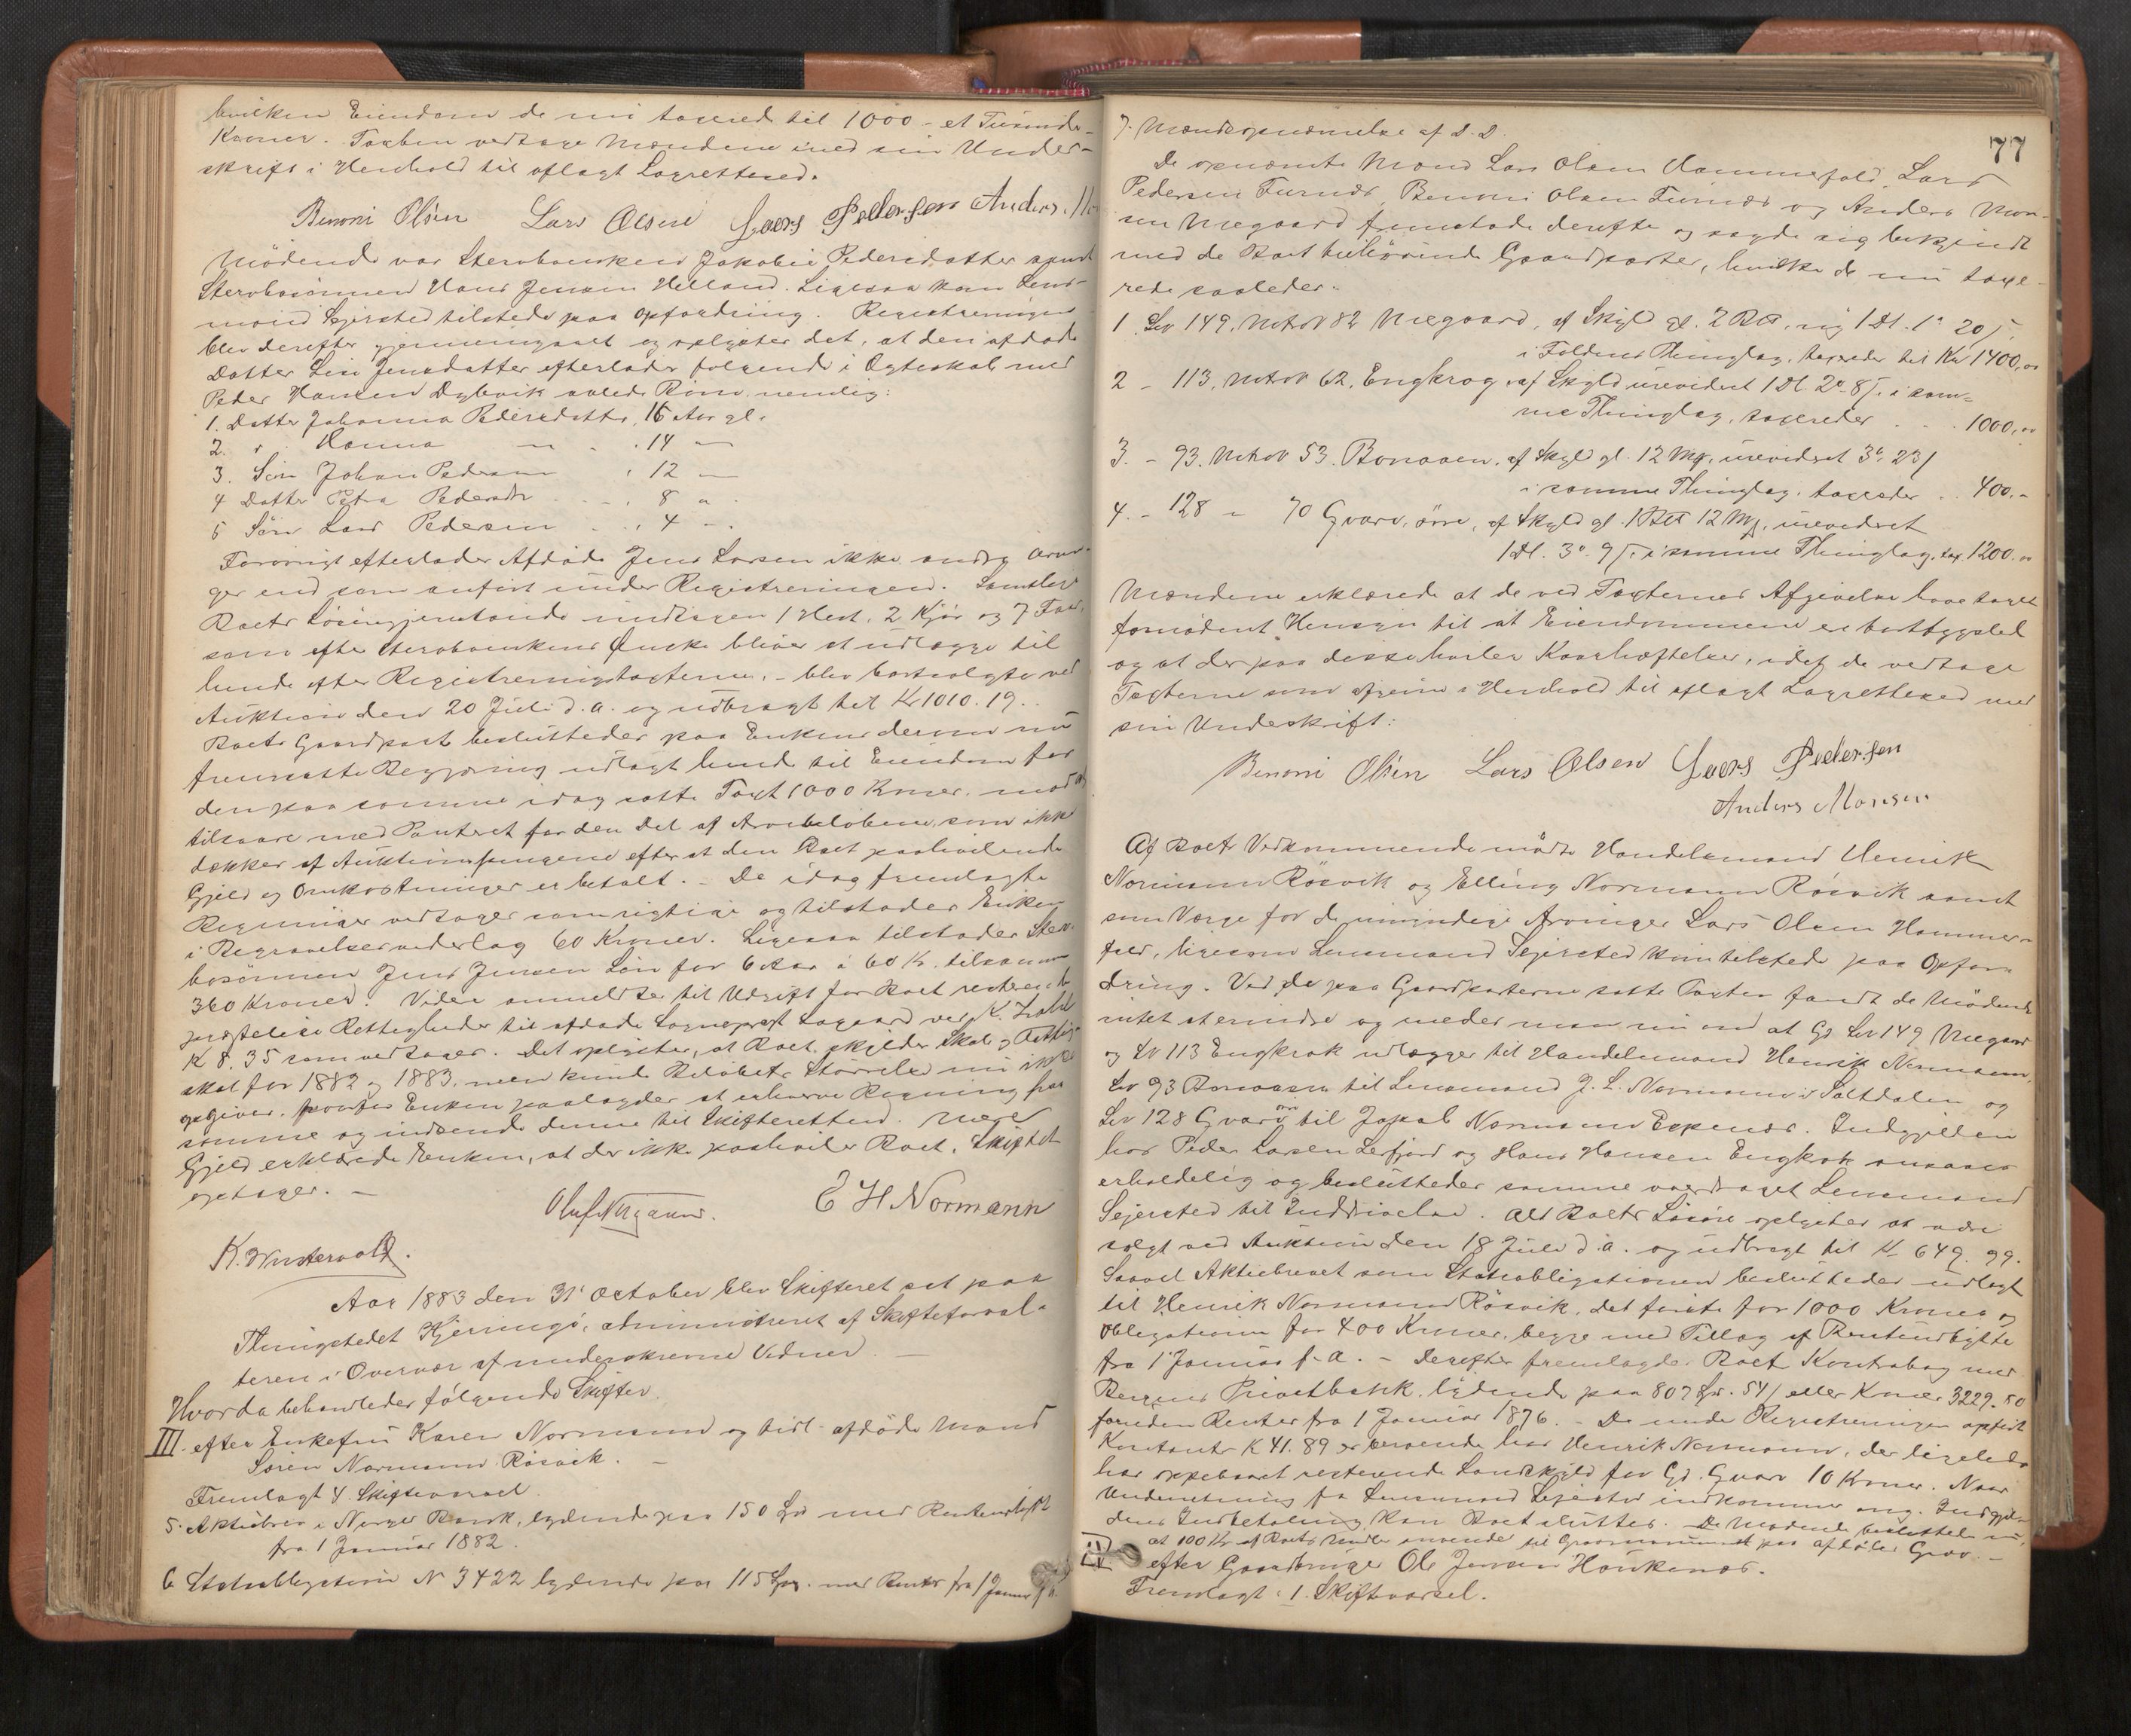 hvilken Eiendom de nu taxerede til 1000 - et Tusinde
Kroner. Taxten vedtage Mændene med sin Under-
skrift i Henhold til aflagt Lagretteed.
Benoni Olsen Lars Olsen Laers Pedersen Anders
Mødende var Stervboenken Jakobie Pedersdatter samt
Stervbosønnen Hans Jensen Helland. Ligesaa kom Lens-
mand Sejersted tilstede paa Opfordring. Registreringen
blev derefter gjennemgaaet og oplystes det, at den afdøde
Datter Lise Jensdatter efterlader følgende i Ægteskab med
Peder Hansen Dybvik avlede Børn nemlig:
1. Datter Johanna Pedersdatter, 16 Aar gl.
2. " Hanna — 14 —
3. Søn Johan Pedersen 12 —
4 Datter Petra Pedersdtr 8 "
5 Søn Lars Pedersen 4 —
Forøvrigt efterlader Afdøde Jens Larsen ikke andre Arvin-
ger end som anført under Registreringen. Samtlige
Boets Løsøregjenstande undtagen 1 Hest, 2 Kjør og 7 Faar,
som efter Stervboenkens Ønske bliver at udlægge til
hende efter Registreringstaxterne, - blev bortsolgte ved
Auktion den 20 Juli d.a. og udbragt til Kr 1010.19.
Boets Gaardpart besluttedes paa Enkens derom nu
fremsatte Begjæring udlagt hende til Eiendom for
den paa samme idag satte Taxt 1000 Kroner, mod at
tilsvare med Panteret for den Del af Arvebeløbene, som ikke
dækkes af Auktionspengene efter at den Boet paahvilende
Gjeld og Omkostninger er betalt. - De idag fremlagte
Regninger vedtages som rigtige og tilstodes Enken
i Begravelsesvederlag 60 Kroner. Ligesaa tilstodes Sterv-
bosønnen Jens Jensen Løn for 6 Aar á 60 Kr. tilsammen
360 Kroner. Videre anmeldtes til Udgift for Boet resterende
prestelige Rettigheder til afdøde Sogneprest Aagaard ved K.
K 8.35 som vedtages. Det oplystes, at Boet skylder Skat og Fattig-
skat for 1882 og 1883, men kunde Beløbets Størrelse nu ikke
opgives, hvorfor Enken paalagdes at erhverve Regning for
samme og indsende denne til Skifteretten. Mere
Gjeld erklærede Enken, at der ikke paahviler Boet. Skiftet
optages. —
E H Normann
K. Wusterwald.
Aar 1883 den 31' October blev Skifteret sat paa
Thingstedet Kjerringø, administreret af Skifteforval-
teren i Overvær af underskrevne Vidner. —
Hvorda behandledes følgende Skifter.
III. efter Enkefru Karen Normann og tidl. afdøde Mand
Søren Normann Røsvik. —
Fremlagt 4. Skiftevarsel.
5. Aktiebrev i Norges Bank, lydende paa 150 Spd med Renteudbytte
fra 1 Januar 1882.
6 Statsobligation N 3422 lydende paa 115 Spd. med Renter fra 1 Januar
77
7. Mændsopnævnelse af D. D.
De opnævnte Mænd Lars Olsen Hammerfald, Lars
Pedersen Furnæs, Benoni Olsen Furnæs og Anders Mon-
sen Mægaard fremstode derefter og sagde sig bekjendt
med de Boet tilhørende Gaardparter, hvilke de nu taxe-
rede saaledes.
1. Løv 149, Matr N 82 Mægaard, af Skyld gl. 2 Bpd, ny 1 Dl. 1 Ort 20 s
i Foldens Thinglag, taxeredes til Kr 1400,00
2 - 113, Matr N 62. Engkrog, af Skyld urevideret 1 Dl 2 Ort 8 s, i sam-
me Thinglag, taxeredes . . . 1000,00
3. - 93. Matr N 53. Bonaasen, af Skyld gl. 12 Mrk, urevideret 3 Ort 23 s
i samme Thinglag, taxeredes . . 400.-
4. - 128 - 70 Gvarv, øvre, af Skyld gl. 1 Bpd 12 Mrk, urevideret
1 Dl. 3 Ort. 9 s, i samme Thinglag, tax. 1200.00
Mændene erklærede at de ved Taxternes Afgivelse have taget
fornødent Hensyn til at Eiendommene er bortbygslet
og at der paa disse hviler Kaarhæftelser, idet de vedtage
Taxterne som afgivne i Henhold til aflagt Lagretteed med
sin Underskrift:
Benoni Olsen Lars Olsen Laers Pedersen
Anders Monsen
Af Boets Vedkommende mødte Handelsmand Henrik
Normann Røsvik og Elling Normann Røsvik samt
som Værge for de umyndige Arvinger Lars Olsen Hammer-
fald, ligesom Lensmand Sejersted kom tilstede paa Opfor-
dring. Ved de paa Gaardparterne satte Taxter fandt de Mødende
intet at erindre og enedes man nu om at Gd Løv 149 Mægaard
og Lv 113 Engkrok udlægges til Handelsmand Henrik Normann,
Lv 93 Bonaasen til Lensmand J. L. Normann i Saltdalen og
Løv 128 Gvarv øvre til Jakob Normann Espenes. Indgjelden
hos Peder Larsen Lerfjord og Hans Hansen Engkrok ansaaes
erholdelig og besluttedes samme overdraget Lensmand
Sejersted til Inddrivelse. Alt Boets Løsøre oplystes at være
solgt ved Auktion den 18 Juli d.a. og udbragt til Kr 649.99.
Saavel Aktiebrevet som Statsobligationen besluttedes udlagt
til Henrik Normann Røsvik, det første for 1000 Kroner og
Obligationen for 400 Kroner, begge med Tillæg af Renteudbytte
fra 1' Januar f.A. - Derefter fremlagdes Boets Kontrabog med
Bergens Privatbank, lydende paa 807 Spd. 54 s eller Kroner 3229.80
foruden Renter fra 1 Januar 1876. - De under Registreringen opførte
Kontanter K 41.89 er beroende hos Henrik Normann, der ligeledes
har oppebaaret resterende Landskyld for Gd. Gvarv 10 Kroner. Naar
Underretning fra Lensmand Sejersted indkommer ang. Indgjel-
dens Indbetaling kan Boet sluttes. De Mødende besluttede nu,
at 100 Kr af Boets Midler anvendes til Gravmonument paa Afdødes Grav. —
efter Gaardbruger Ole Jensen Haukenæs.
Fremlagt: 1. Skiftevarsel.